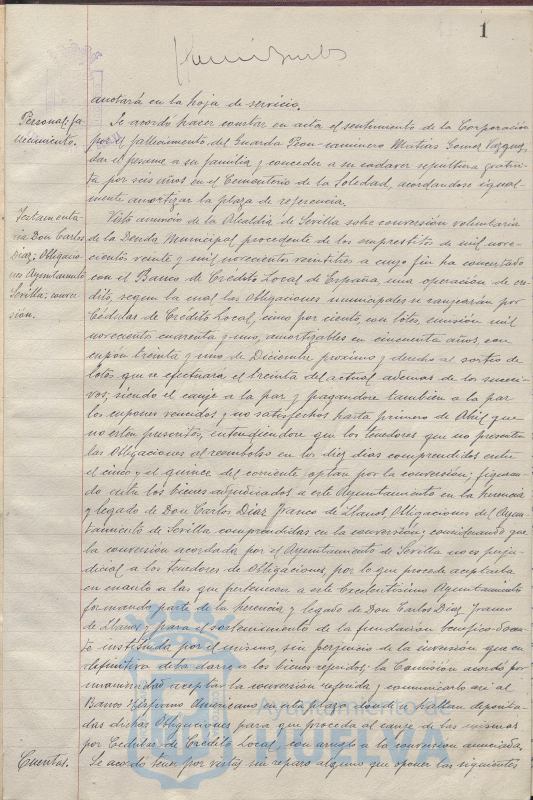 1
anotará en la hoja de servicio.
Personal; fa-
llecimiento.
Se acordó hacer constar en acta el sentimiento de la Corporación
por el fallecimiento del Guarda Peon-caminero Matias Gomez Vazquez,
dar el pesame a su familia y conceder a su cadaver sepultura gratui-
ta por seis años en el Cementerio de la Soledad, acordandose igual-
mente amortizar la plaza de referencia.
Testamenta-
ria Don Carlos
Diaz; Obligacio-
nes Ayuntamiento
Sevilla; conver-
sión.
Visto anuncio de la Alcaldia de Sevilla sobre conversión voluntaria
de la Deuda Municipal procedente de los emprestitos de mil nove-
cientos veinte y mil novecientos veintitres a cuyo fin ha concertado
con el Banco de Crédito Local de España, una operación de cré-
dito, segun la cual las Obligaciones municipales se canjearán por
Cédulas de Credito Local, cinco por ciento, con lotes, emisión mil
novecientos cuarenta y uno, amortizables en cincuenta años, con
cupón treinta y uno de Diciembre proximo y derecho al sorteo de
lotes que se efectuará el treinta del actual ademas de los sucesi-
vos; siendo el canje a la par y pagandose tambien a la par
los cupones vencidos y no satisfechos hasta primero de Abril que
no esten prescritos, entendiendose que los tenedores que no presenten
las Obligaciones al reembolso en los diez dias comprendidos entre
el cinco y el quince del corriente optan por la conversión; figuran-
do entre los bienes adjudicados a este Ayuntamiento en la herencia
y legado de Don Carlos Diaz Franco de Llanos, Obligaciones del Ayun-
tamiento de Sevilla comprendidas en la conversión; considerando que
la conversión acordada por el Ayuntamiento de Sevilla no es perju-
dicial a los tenedores de Obligaciones por lo que procede aceptarla
en cuanto a las que pertenecen a este Excelentisimo Ayuntamiento
formando parte de la herencia y legado de Don Carlos Diaz Franco
de Llanos y para el sostenimiento de la fundación benefico-docen-
te instituida por el mismo, sin perjuicio de la inversión que en
definitiva deba darse a los bienes referidos; la Comisión acordó por
unanimidad aceptar la conversión referida y comunicarlo así al
Banco Hispano Americano en esta plaza donde se hallan deposita-
das dichas Obligaciones para que proceda al canje de las mismas
por Cedulas de Crédito Local, con arreglo a la conversión anunciada.
Cuentas.
Se acordó tener por vistas, sin reparo alguno que oponer las siguientes
Ayuntamiento de
HUELVA